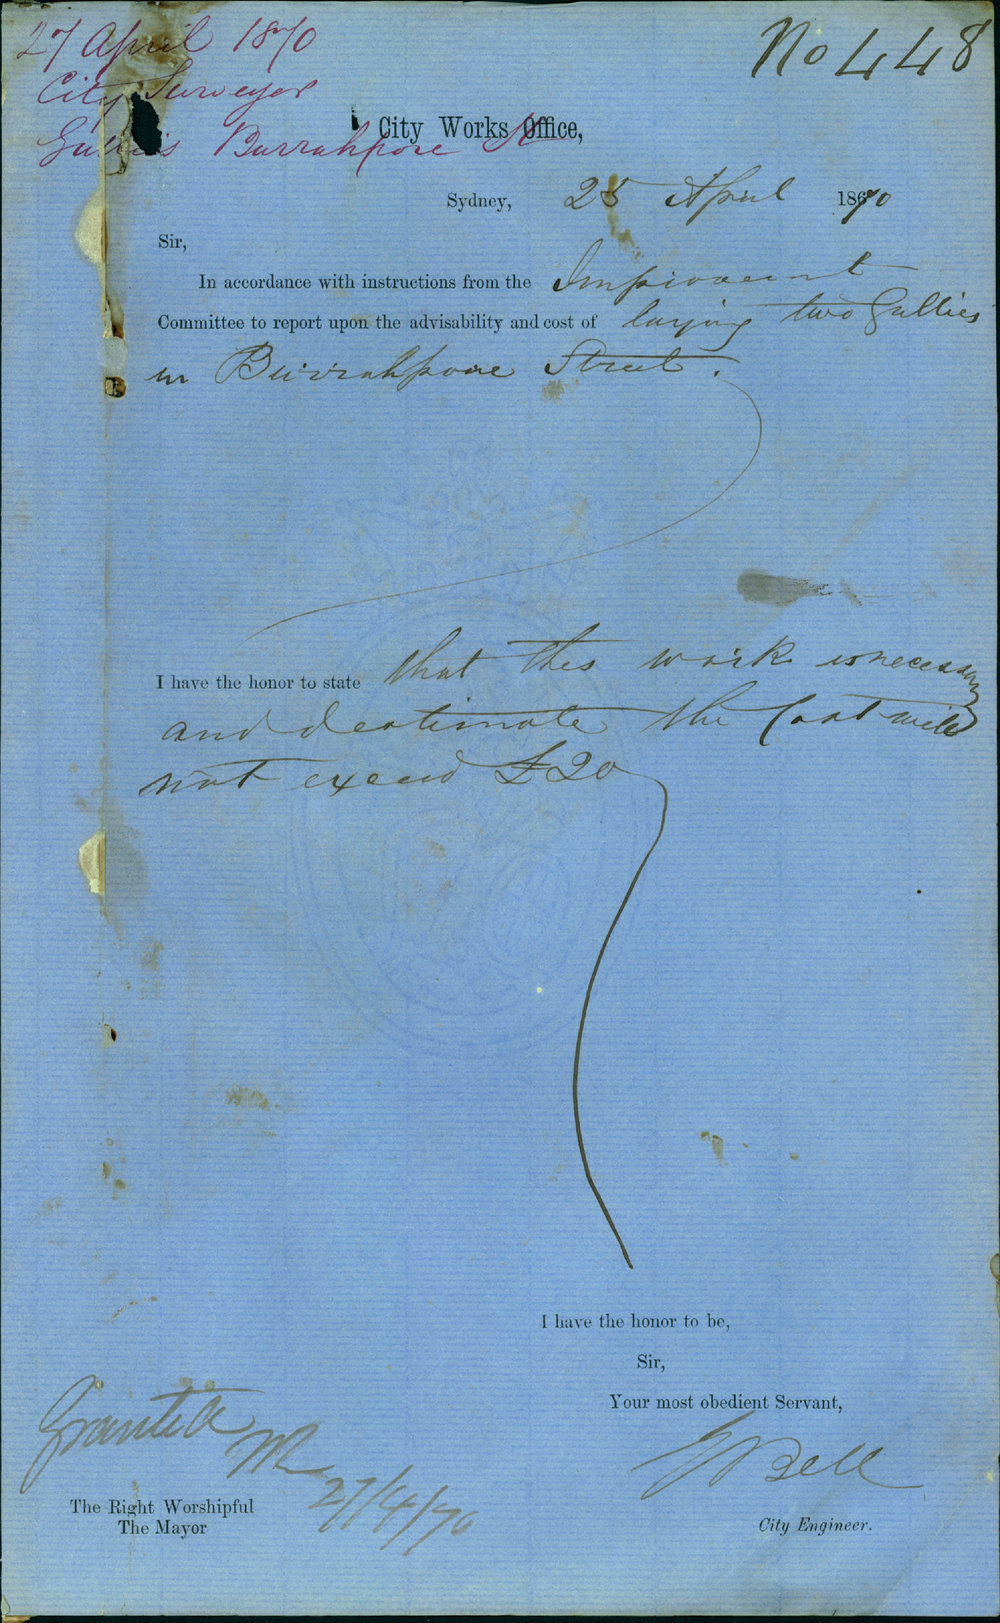 27 April 1870
City Surveyor
Gullies Burrahpore St
No 448
City Works Office,
Sydney, 25 April 1870
Sir,
In accordance with instructions from the Improvement
Committee to report upon the advisability and cost of laying two Gullies
in Burrahpore Street.
I have the honor to state that this work is necessary
and I estimate the Cost will
not exceed £20
I have the honor to be,
Sir,
Your most obedient Servant,
Granted
27/4/70
Bell
The Right Worshipful
The Mayor
City Engineer.